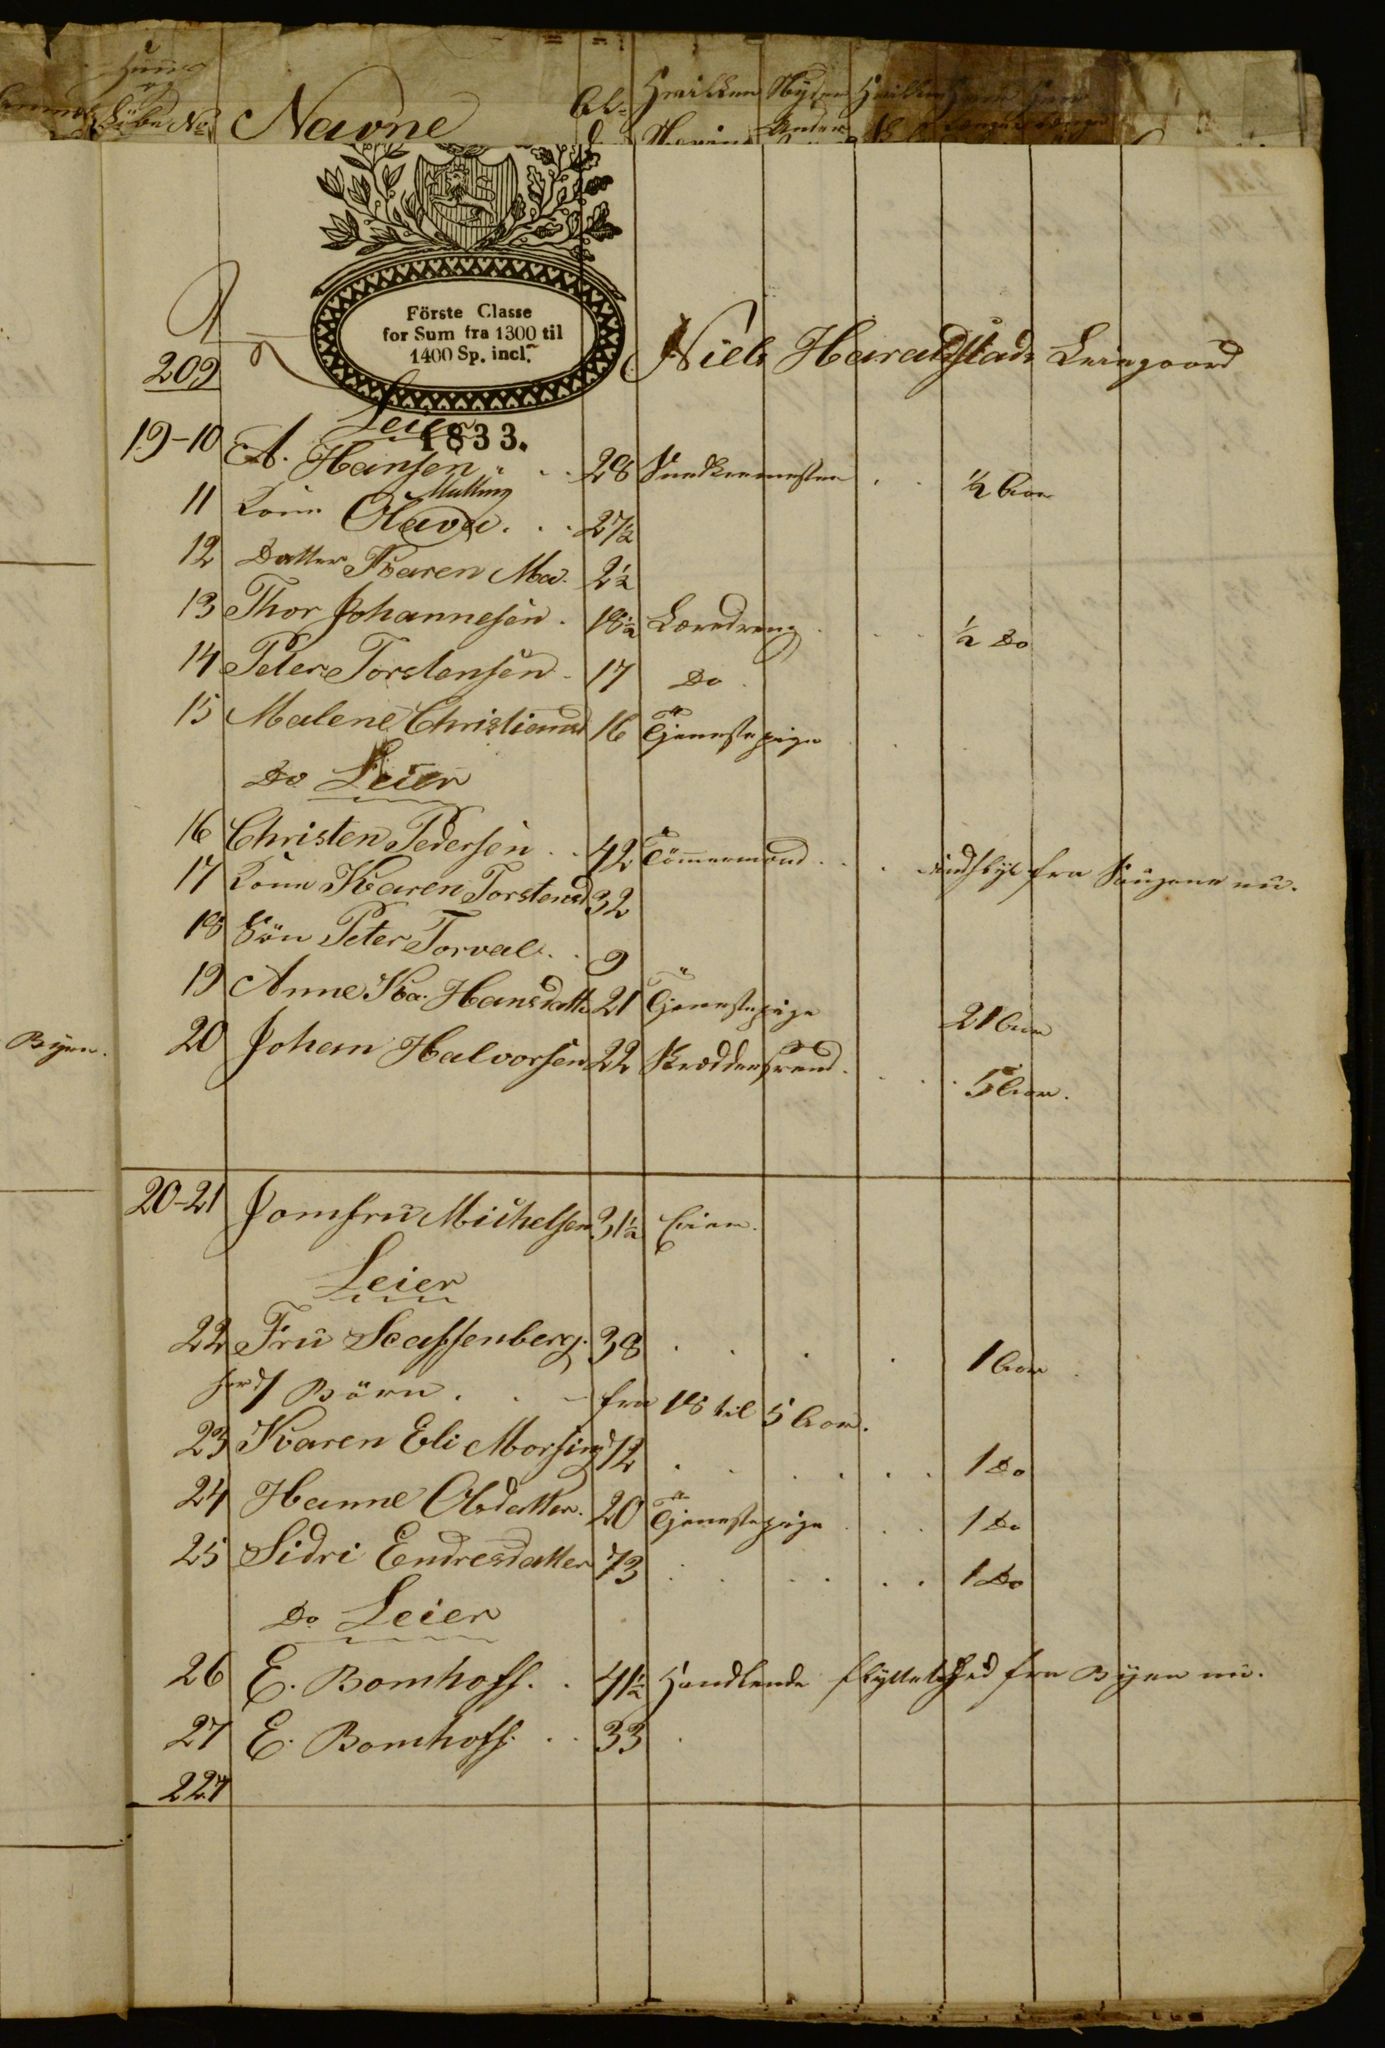 Navne
Förste Classe
for Sum fra 1300 til
1400 Sp. incl.
1833.
209
Niels Haraldstads Leiegaard
Leier
19-10 A. Hansen 28 Snedkermester ½ Aar
Malling
11 Kone Olava 27½
12 Datter Karen Ma. 2½
13 Thor Johannesen 18½ Læredreng ½ Do
14 Peter Torstensen 17 Do
15 Malene Christiansd 16 Tjenestepige
Do Leier
16 Christen Pedersen 42 Tömmermand indflyt fra nu.
17 Kone Karen Torstensd 32
18 Sön Peter Torval 9
19 Anne Ka. Hansdatt 21 Tjenestepige 21 Aar
20 Johan Halvorsen 22 Skræddersvend 5 Aar.
Byen.
20-21 Jomfru Michelsen 31½ Eier.
Leier
22 Fru Scaffenberg. 38 1 Aar
7 Börn fra 18 til 5 Aar.
23 Karen Eli Morsing 72 1 Do
24 Hanne Olsdatter. 20 Tjenestepige 1 Do
25 Sidri Endresdatter 73 1 Do
Do Leier
26 E. Bomhoff. 41½ Handlende flyttet hid fra Byen nu.
27 E. Bomhoff. 33
227